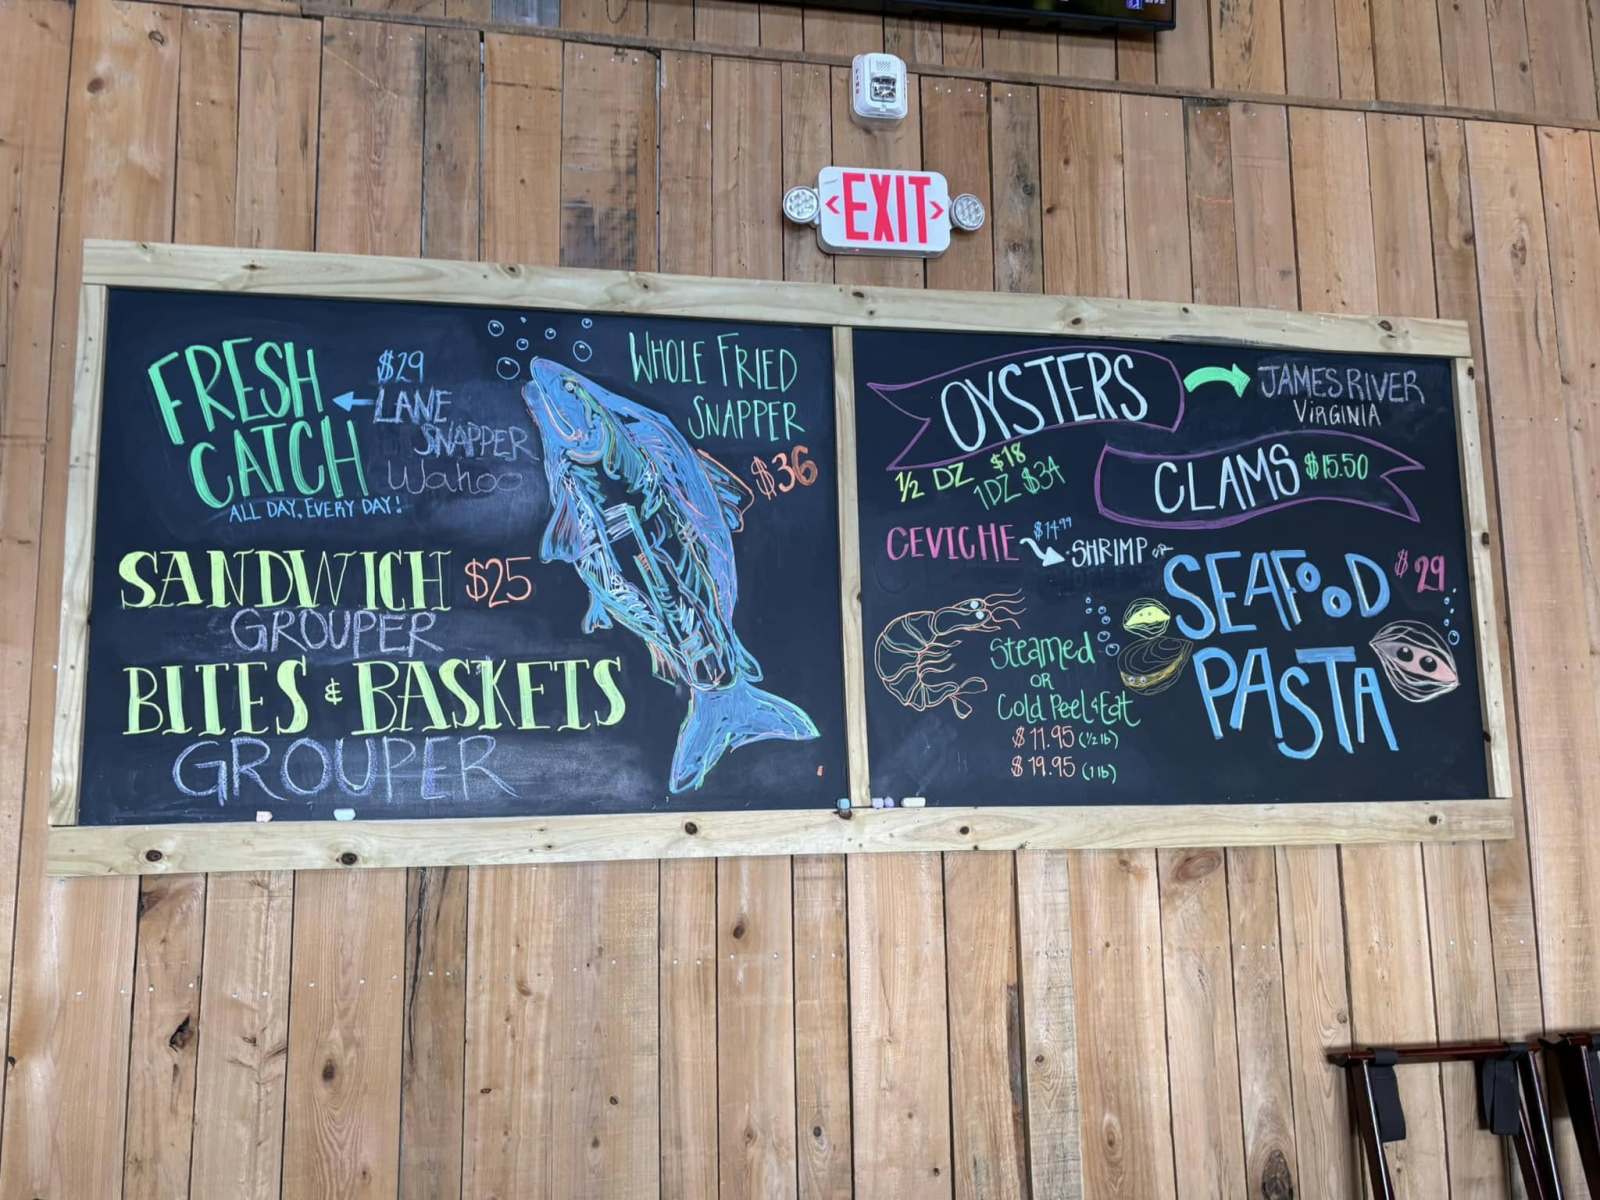 EXIT
FRESH
CATCH
ALL DAY, EVERY DAY!
$29
LANE
SNAPPER
Wahoo
WHOLE FRIED
SNAPPER
$36
SANDWICH $25
GROUPER
BITES & BASKETS
GROUPER
OYSTERS
JAMES RIVER
VIRGINIA
1/2 DZ $18
1DZ $34
CLAMS $15.50
CEVICHE $14.99
SHRIMP
Steamed
OR
Cold Peel & Eat
$11.95 (1/2 lb)
$19.95 (1 lb)
SEAFOOD $29
PASTA